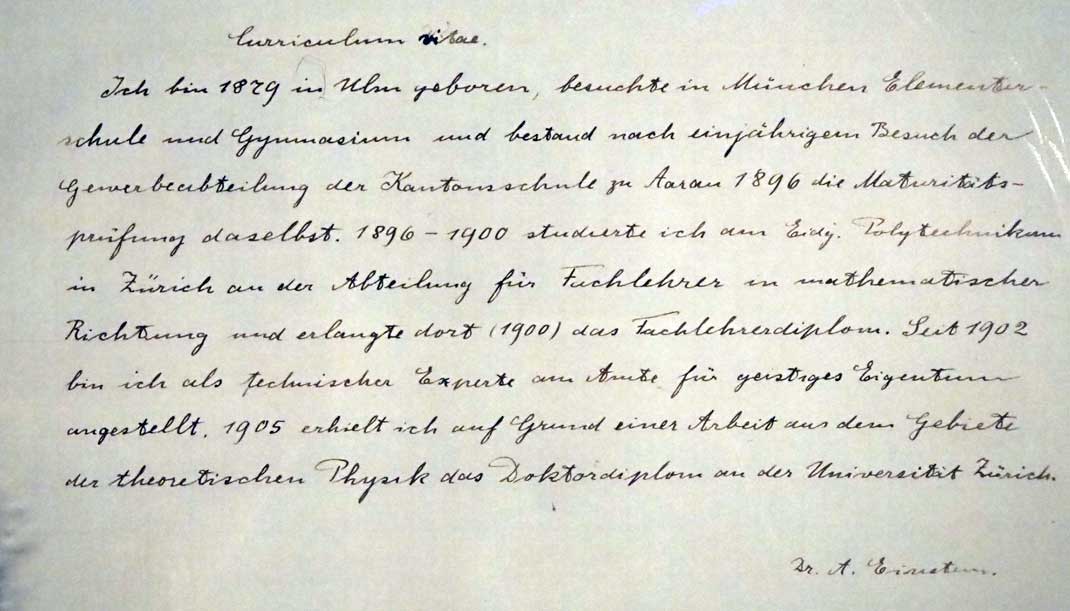 Curriculum vitae.
Ich bin 1879 in Ulm geboren, besuchte in München Elementar-
schule und Gymnasium und bestand nach einjährigem Besuch der
Gewerbeabteilung der Kantonsschule zu Aarau 1896 die Maturitäts-
prüfung daselbst. 1896 – 1900 studierte ich am Eidg. Polytechnikum
in Zürich an der Abteilung für Fachlehrer in mathematischer
Richtung und erlangte dort (1900) das Fachlehrerdiplom. Seit 1902
bin ich als technischer Experte am Amte für geistiges Eigentum
angestellt. 1905 erhielt ich auf Grund einer Arbeit aus dem Gebiete
der theoretischen Physik das Doktordiplom an der Universität Zürich.
Dr. A. Einstein.